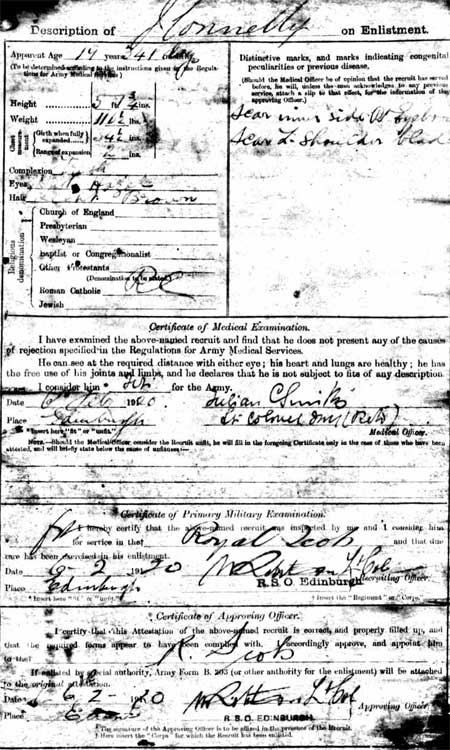 Description of J. Connelly on Enlistment.
Apparent Age 19 years 41
(To be determined according to the instructions given in the Regulations for Army Medical Services.)
Height 5
ins.
Weight lbs.
Chest measurement
Girth when fully expanded 34½ ins.
Range of expansion 2 ins.
Complexion
Eyes
Hair Brown
Religious denomination
Church of England
Presbyterian
Wesleyan
Baptist or Congregationalist
Other Protestants
(Denomination to be stated)
Roman Catholic RC
Jewish
Distinctive marks, and marks indicating congenital
peculiarities or previous disease.
(Should the Medical Officer be of opinion that the recruit has served
before, he will, unless the man acknowledges to any previous
service, attach a slip to that effect, for the information of the
approving Officer.)
Scar inner side
Scar L. Shoulder blade
Certificate of Medical Examination.
I have examined the above-named recruit and find that he does not present any of the causes
of rejection specified in the Regulations for Army Medical Services.
He can see at the required distance with either eye; his heart and lungs are healthy; he has
the free use of his joints and limbs, and he declares that he is not subject to fits of any description.
I consider him fit for the Army.
Date 1920
Julian C
Place Edinburgh
Lt Colonel
Medical Officer.
*Insert here "fit" or "unfit."
NOTE.—Should the Medical Officer consider the Recruit unfit, he will fill in the foregoing Certificate only in the case of those who have been
attested, and will briefly state below the cause of unfitness:—
Certificate of Primary Military Examination.
I hereby certify that the above-named recruit was inspected by me and I consider him
fit for service in the† Royal Scots and that due
care has been exercised in his enlistment.
Date 6 2 1920
Lt Col
Recruiting Officer.
Place Edinburgh
R.S.O. Edinburgh
*Insert here "fit" or "unfit."
† Insert the "Regiment" or "Corps."
Certificate of Approving Officer.
I certify that this Attestation of the above-named recruit is correct, and properly filled up, and
that the required forms appear to have been complied with. I accordingly approve, and appoint him
to the† R. Scots
If enlisted by special authority, Army Form B. 203 (or other authority for the enlistment) will be attached
to the original attestation.
Date 6 - 2 - 1920
Lt Col
Approving Officer.
Place
R.S.O. EDINBURGH.
*The signature of the Approving Officer is to be affixed in the presence of the Recruit.
†Here insert the "Corps" for which the Recruit has been enlisted.